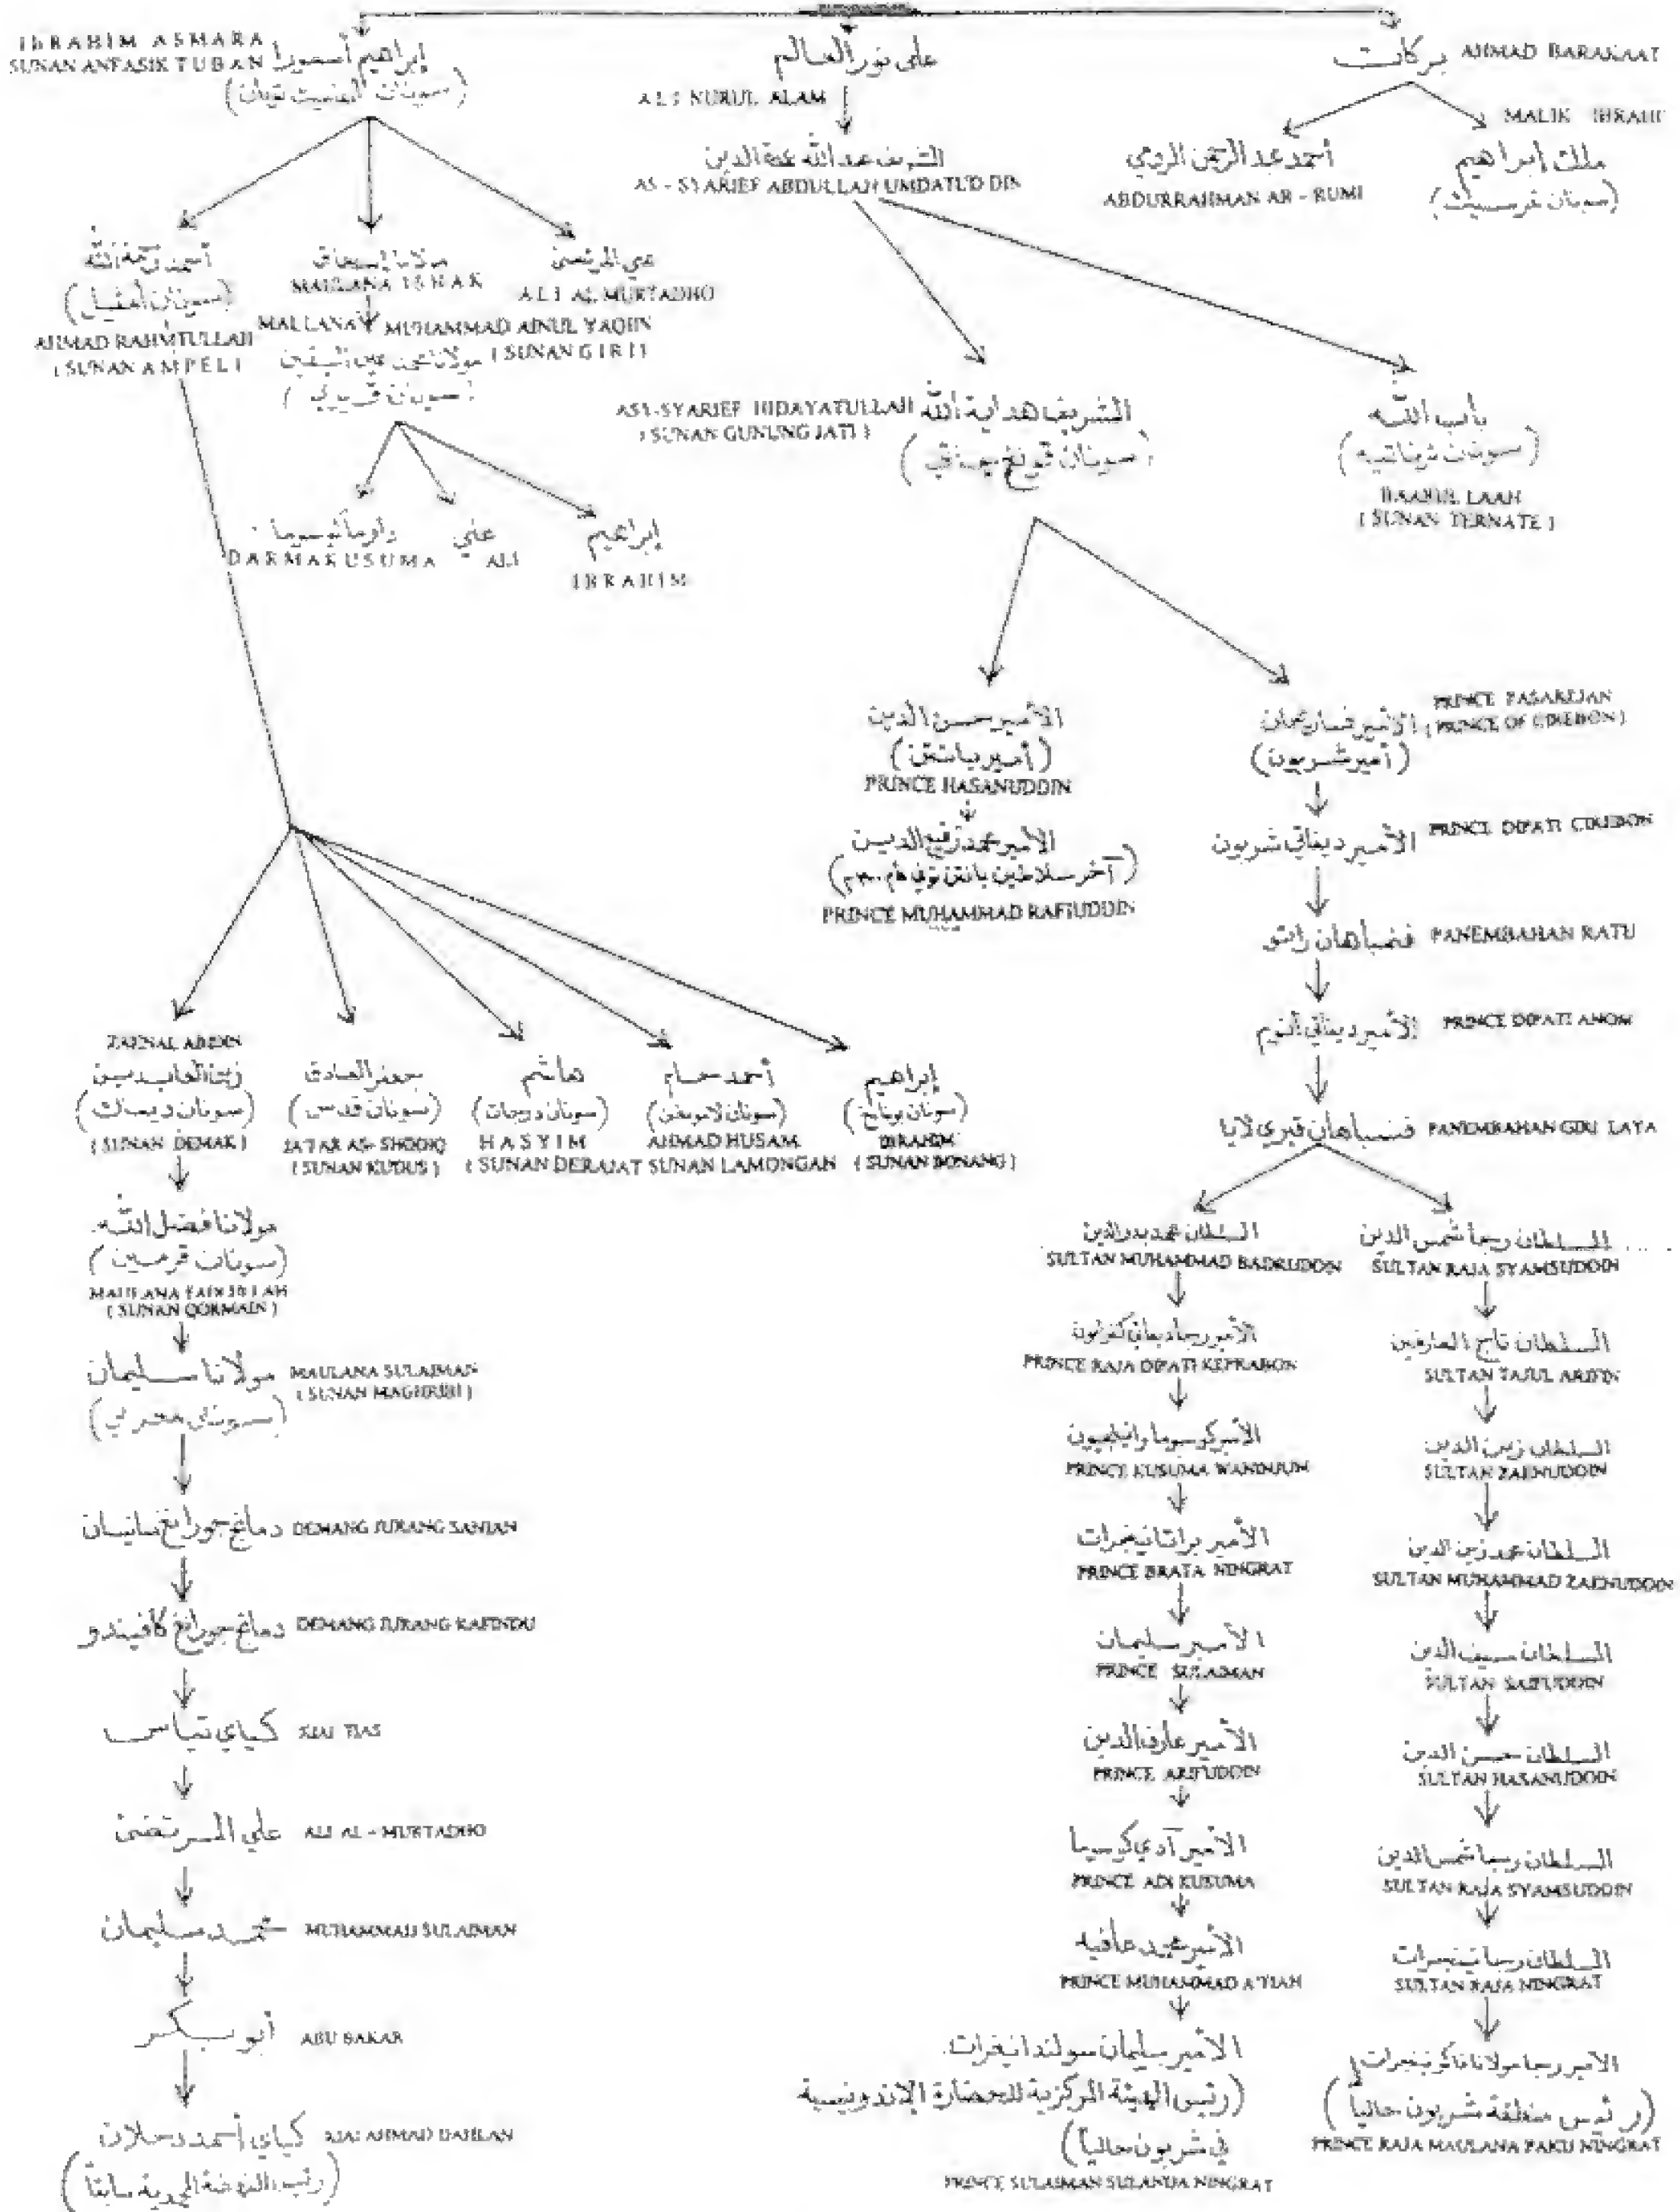 IBRAHIM ASMARA
SUNAN ANFASIK TUBAN
إبراهيم أسمورا
علي نور العالم
ALI NURUL ALAM
بركات
AHMAD BARAKAAT
MALIK IBRAHI
الشريف عبد الله عمدة الدين
AS - SYARIEF ABDULLAH UMDATU'D DIN
أحمد عبد الرحمن الرومي
ABDURRAHMAN AR - RUMI
ملك إبراهيم
(سونان قرسيك)
أحمد رحمة الله
(سونان أمفيل)
AHMAD RAHMTULLAH
( SUNAN AMPEL )
مولانا إسحاق
MAULANA ISHAK
علي المرتضى
ALI AL MURTADHO
MALLANA MUHAMMAD AINUL YAQIIN
( SUNAN GIRI )
مولانا محمد عين اليقين
(سونان قيري)
ASY-SYARIEF HIDAYATULLAH
( SUNAN GUNUNG JATI )
الشريف هداية الله
(سونان قونغ جاتي)
باب الله
(سونان ترناتيه)
BAABUL LAAH
( SUNAN TERNATE )
دارماكوسوما
DARMAKUSUMA
علي
ALI
إبراهيم
IBRAHIM
الأمير حسن الدين
(أمير بانتن)
PRINCE HASANUDDIN
الأمير فساريجان
(أمير شربون)
PRINCE PASAREJAN
( PRINCE OF CIREBON )
الأمير محمد رفيع الدين
(آخر سلاطين بانتن توفي عام
PRINCE MUHAMMAD RAFIUDDIN
الأمير ديفاتي شربون
PRINCE DIPATI CIREBON
فنمباهان راتو
PANEMBAHAN RATU
الأمير ديفاتي أنوم
PRINCE DIPATI ANOM
فنمباهان قيري لايا
PANEMBAHAN GIRI LAYA
ZAENAL ABIDIN
زين العابدين
(سونان ديماك)
( SUNAN DEMAK )
جعفر الصادق
(سونان قدس)
JA'FAR AS- SHODIQ
( SUNAN KUDUS )
هاشم
(سونان درجات)
HASYIM
( SUNAN DERAJAT
أحمد حسام
(سونان لامونغن)
AHMAD HUSAM
SUNAN LAMONGAN
إبراهيم
(سونان بونانج)
IBRAHIM
( SUNAN BONANG )
مولانا فضل الله
(سونان قرمين)
MAULANA FADHLILAH
( SUNAN QORMAIN )
مولانا سليمان
(سونان مغربي)
MAULANA SULAIMAN
( SUNAN MAGHRIBI )
دمانج جورانغ سانسان
DEMANG JURANG SANJAN
دمانج جورانغ كافيندو
DEMANG JURANG KAPINDU
كياي تياس
KIAI TIAS
علي المرتضى
ALI AL - MURTADHO
محمد سليمان
MUHAMMAD SULAIMAN
أبو بكر
ABU BAKAR
كياي أحمد دحلان
KIAI AHMAD DAHLAN
السلطان محمد بدر الدين
SULTAN MUHAMMAD BADRUDDIN
الأمير رجا ديفاتي كفربون
PRINCE RAJA DIPATI KEPRABON
PRINCE KUSUMA WANINJUN
PRINCE BRATA NINGRAT
الأمير سليمان
PRINCE SULAIMAN
الأمير عارف الدين
PRINCE ARIFUDDIN
الأمير آدي كوسيما
PRINCE ADI KUSUMA
الأمير محمد عافيه
PRINCE MUHAMMAD A'FIAH
الأمير سليمان سولندا نيغرات
(رئيس الهيئة المركزية للحضارة الإندونيسية
في شربون حاليا)
PRINCE SULAIMAN SULANDA NINGRAT
السلطان رجا شمس الدين
SULTAN RAJA SYAMSUDDIN
السلطان تاج العارفين
SULTAN TAJUL ARIFIN
السلطان زين الدين
SULTAN ZAENUDDIN
السلطان محمد زين الدين
SULTAN MUHAMMAD ZAENUDDIN
السلطان سيف الدين
SULTAN SAIFUDDIN
السلطان حسن الدين
SULTAN HASANUDDIN
السلطان رجا شمس الدين
SULTAN RAJA SYAMSUDDIN
السلطان رجا نينجرات
SULTAN RAJA NINGRAT
الأمير رجا مولانا فاكو نينجرات
(رئيس منطقة شربون حاليا)
PRINCE RAJA MAULANA PAKU NINGRAT